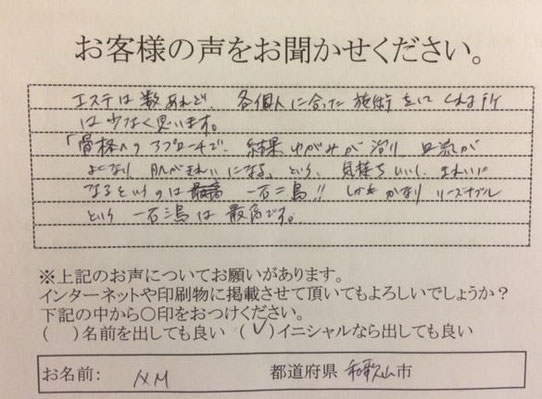 お客様の声をお聞かせください。
エステは数あれど、各個人に合った施術をしてくれる所
は少なく思います。
「骨格へのアプローチで、結果ゆがみが治り血流が
よくなり肌がきれいになる、という、気持ちいいし、きれいに
なるというのは 一石二鳥!! しかもかなりリーズナブル
という一石三鳥は最高です。
※上記のお声についてお願いがあります。
インターネットや印刷物に掲載させて頂いてもよろしいでしょうか?
下記の中から〇印をおつけください。
(  )名前を出しても良い (✓)イニシャルなら出しても良い
お名前: N.M 都道府県 和歌山市